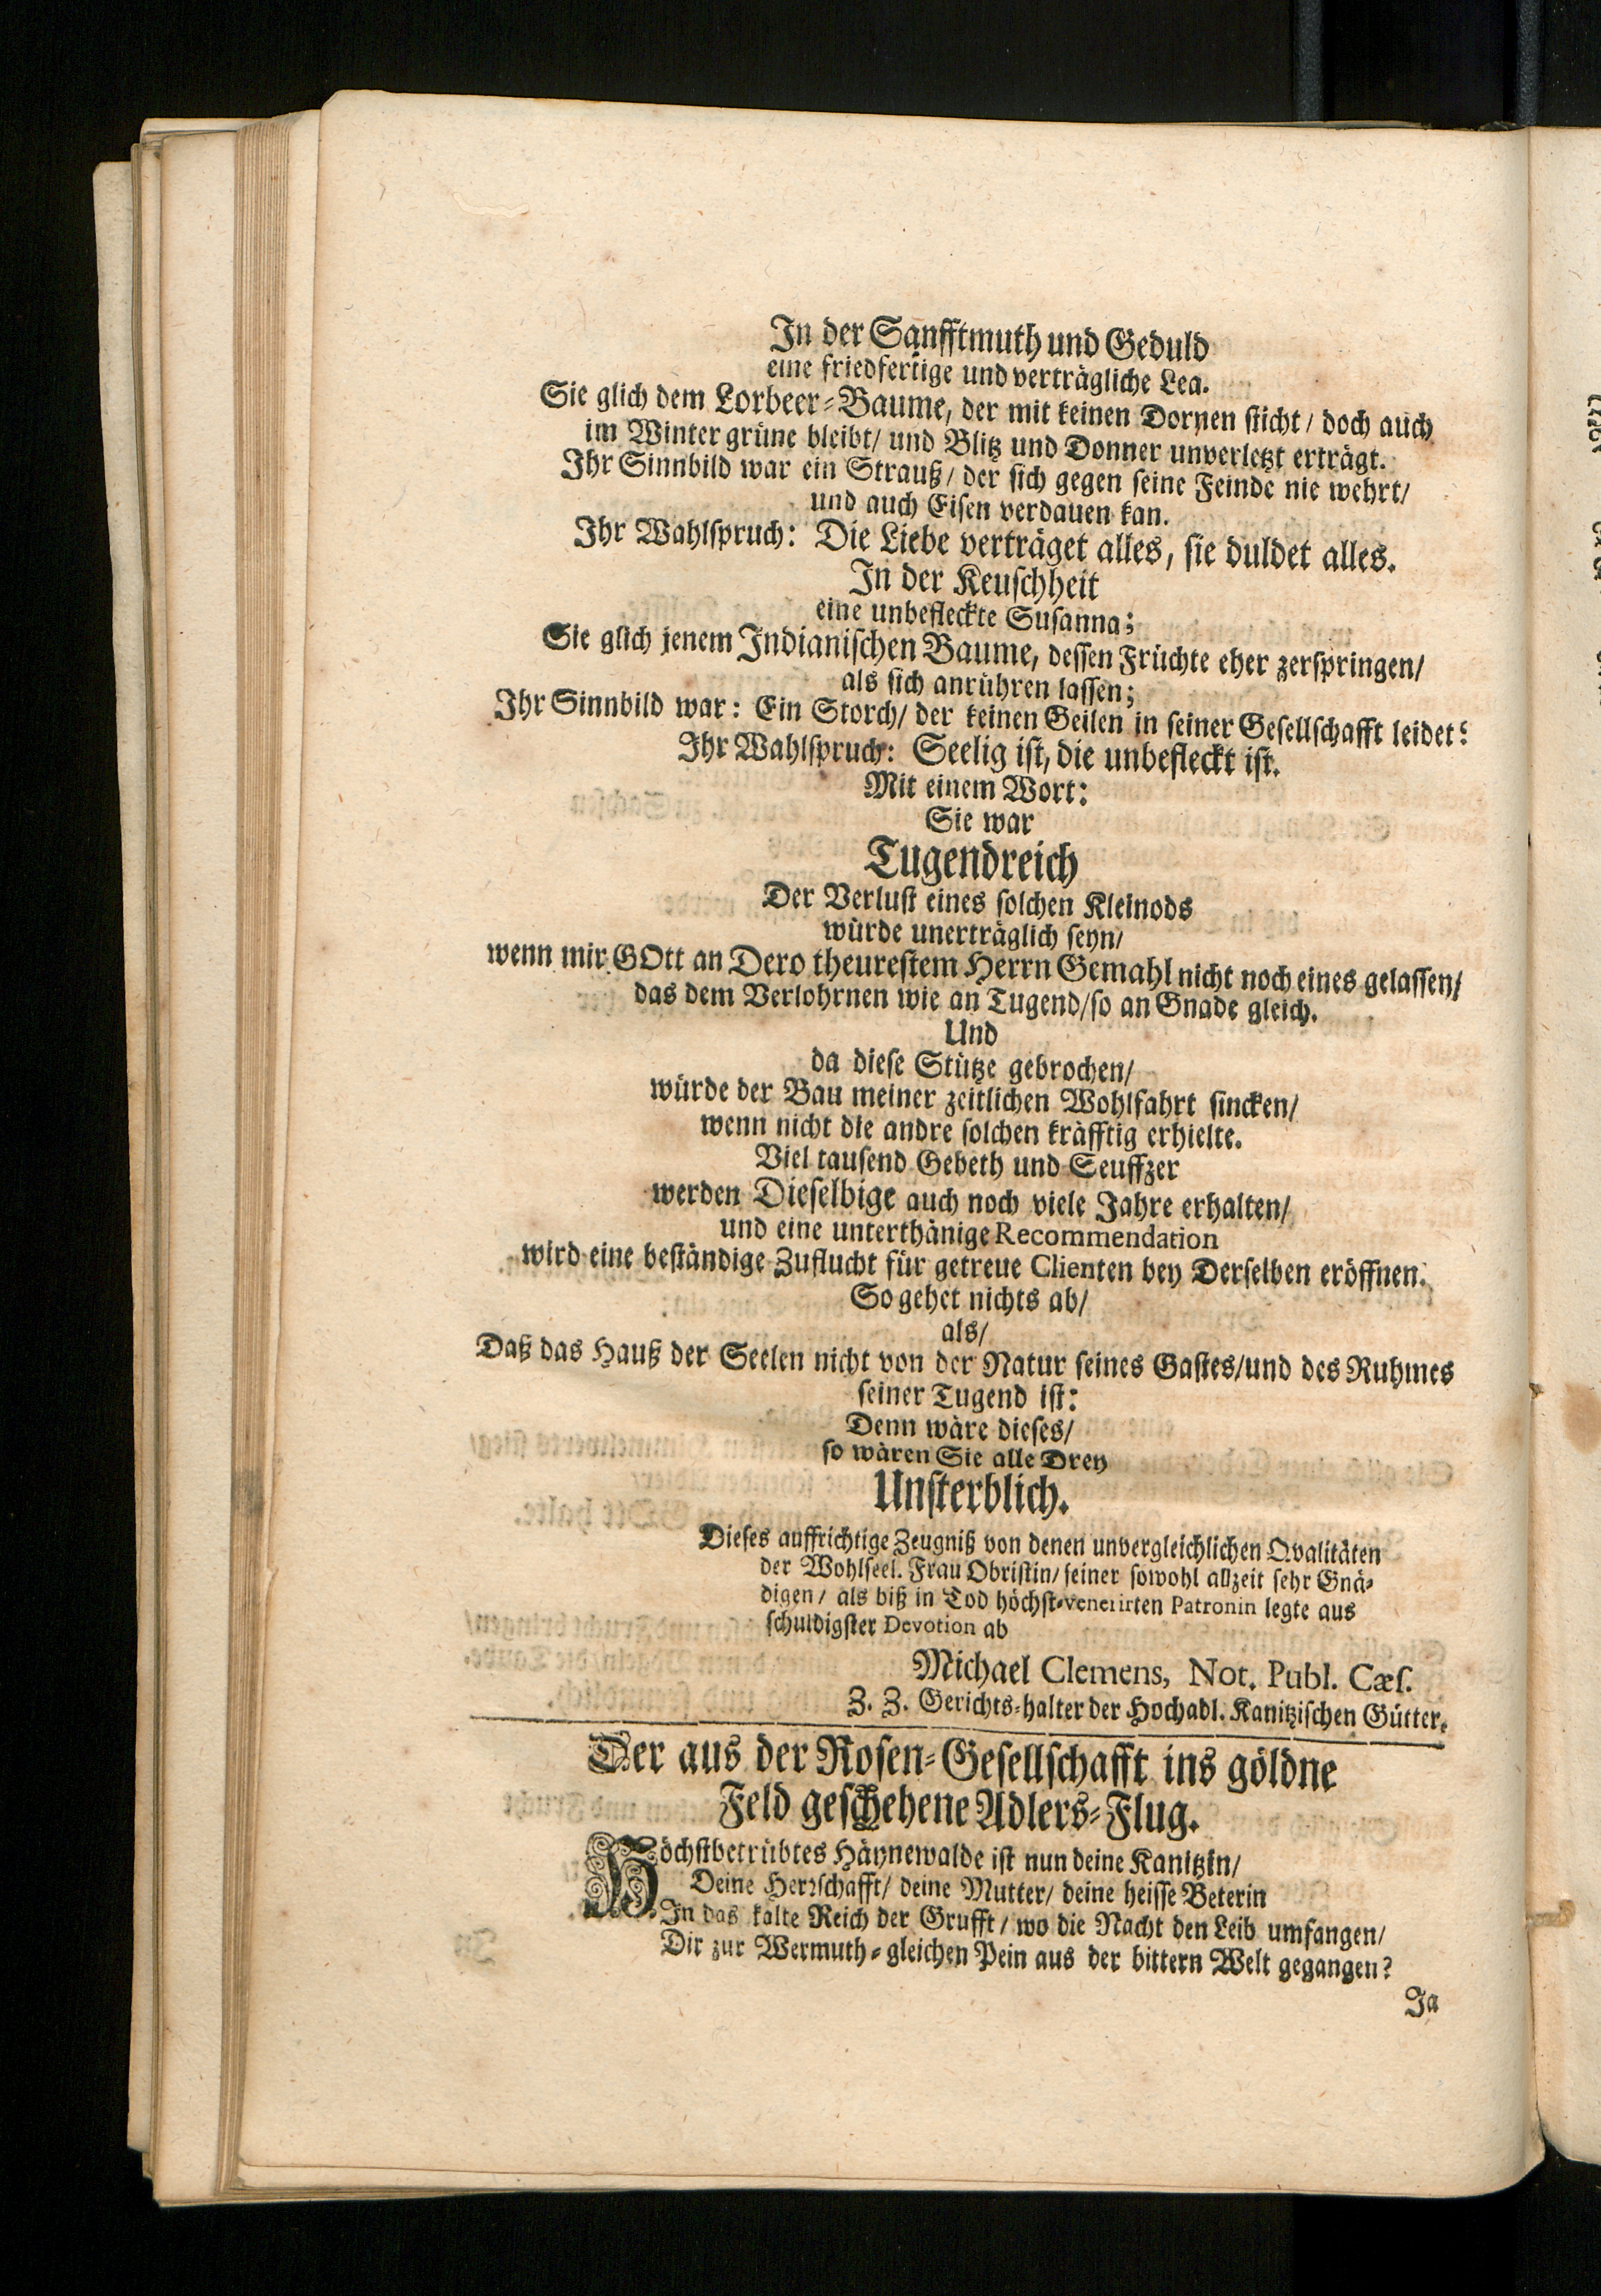 In der Sanfftmuth und Geduld
eine friedfertige und verträgliche Lea.
Sie glich dem Lorbeer-Baume, der mit keinen Dornen sticht / doch auch
im Winter grüne bleibt / und Blitz und Donner unverletzt erträgt.
Ihr Sinnbild war ein Strauß / der sich gegen seine Feinde nie wehrt /
und auch Eisen verdauen kan.
Ihr Wahlspruch: Die Liebe verträget alles, sie duldet alles.
In der Keuschheit
eine unbefleckte Susanna;
Sie glich jenem Indianischen Baume, dessen Früchte eher zerspringen /
als sich anrühren lassen;
Ihr Sinnbild war: Ein Storch / der keinen Geilen in seiner Gesellschafft leidet:
Ihr Wahlspruch: Seelig ist, die unbefleckt ist.
Mit einem Wort:
Sie war
Tugendreich
Der Verlust eines solchen Kleinods
würde unerträglich seyn /
wenn mir GOtt an Dero theurestem Herrn Gemahl nicht noch eines gelassen /
das dem Verlohrnen wie an Tugend / so an Gnade gleich.
Und
da diese Stütze gebrochen /
würde der Bau meiner zeitlichen Wohlfahrt sincken /
wenn nicht die andre solchen kräfftig erhielte.
Viel tausend Gebeth und Seuffzer
werden Dieselbige auch noch viele Jahre erhalten /
und eine unterthänige Recommendation
wird eine beständige Zuflucht für getreue Clienten bey Derselben eröffnen.
So gehet nichts ab /
als /
Daß das Hauß der Seelen nicht von der Natur seines Gastes / und des Ruhmes
seiner Tugend ist:
Denn wäre dieses /
so wären Sie alle Drey
Unsterblich.
Dieses auffrichtige Zeugniß von denen unvergleichlichen Qvalitäten
der Wohlseel. Frau Obristin / seiner sowohl allzeit sehr Gnä-
digen / als biß in Tod höchst-venerirten Patronin legte aus
schuldigster Devotion ab
Michael Clemens, Not. Publ. Cæs.
Z. Z. Gerichts-halter der Hochadl. Kanitzischen Gütter.
Der aus der Rosen-Gesellschafft ins göldne
Feld geschehene Adlers-Flug.
Höchstbetrübtes Häynewalde ist nun deine Kanitzin /
Deine Herrschafft / deine Mutter / deine heisse Beterin
In das kalte Reich der Grufft / wo die Nacht den Leib umfangen /
Dir zur Wermuth-gleichen Pein aus der bittern Welt gegangen?
Ja